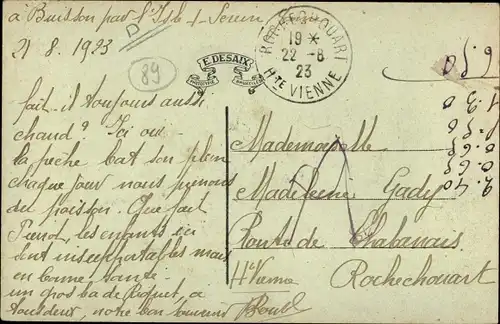 à Buisson par l'Isle s/ Sorein
D
21 8. 1923
89
E. DESAIX
ROCHECHOUART
19 *
22 - 8
23
Hte VIENNE
fait-il toujours aussi
chaud? Ici oui
la pêche bat son plein
chaque jour nous prenons
du poisson. Que fait
Pierrot, les enfants ici
sont insupportables mais
en bonne santé
un gros ba de Riquet, a
tous deux, notre bon souvenir
Mademoiselle
Madeleine Gady
Route de Chabanais
Hte Vienne
Rochechouart